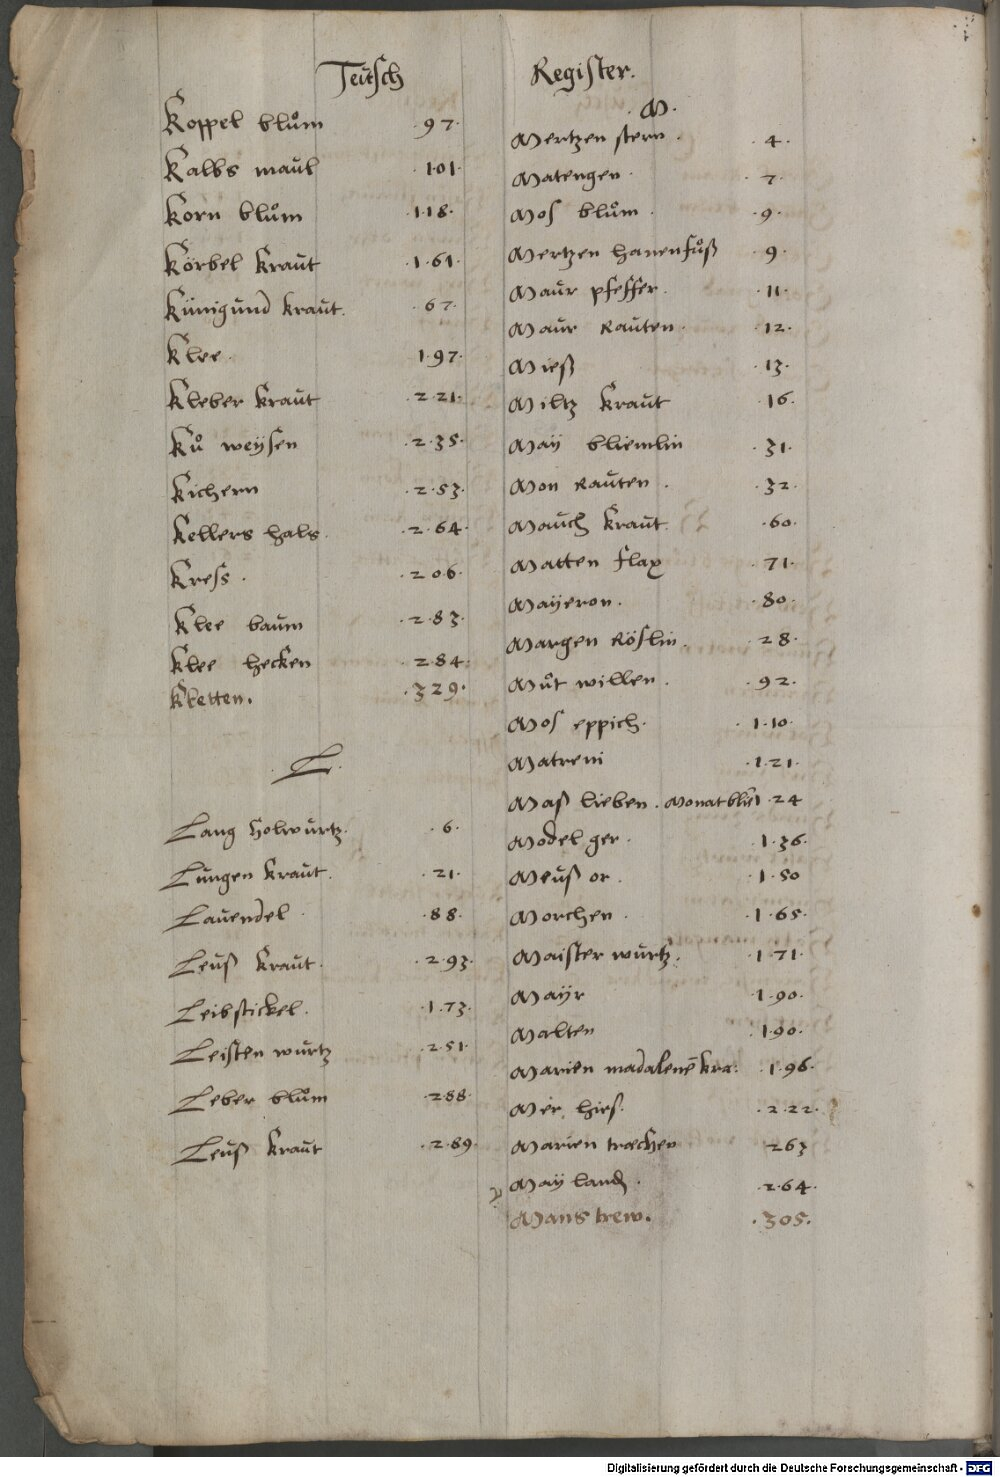 Teütsch Register.
Koppel blům .97.
Kalbs maul .101.
Korn blům .118.
Körbel kraut .161.
Künigund kraut. .67.
Klee. 197.
Kleber kraut .221.
Ků weysen .235.
Kichern .253.
Kellers hals. .264.
Kress. .206.
Klee baum .283.
Klee hecken .284.
Kletten. .329.
.L.
Lang Holwurtz. .6.
Lungen kraut. .21.
Lauendel. .88.
Leuß kraut. .293.
Leibstickel. .173.
Leisten wurtz .251.
Leber blům .288.
Leuß kraut .289.
.M.
Mertzen stern. .4.
Matengen. .7.
Mos blům. .9.
Mertzen hanenfůß .9.
Maur pfeffer. .11.
Maur Rauten. .12.
Mieß .13.
Miltz kraut .16.
May bliemlin .31.
Mon Rauten. .32.
Mauch kraut. .60.
Matten flax .71.
Mayeron. .80.
Margen Röslin. .28.
Můt willen. .92.
Mos eppich. .110.
Matreni .121.
Maß lieben. Monat blie .24
Model ger. .136.
Meuß or. .150
Morchen. .165.
Maister wurtz. .171.
Mayr .190.
Malten .190.
Marien madalenē kra: .196.
Mer hirß. .222.
Marien 263
May land. .264.
Mans trew. .305.
Digitalisierung gefördert durch die Deutsche Forschungsgemeinschaft - DFG